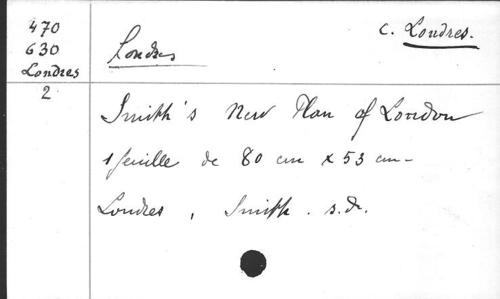 470
630
Londres
2
C. Londres.
Londres
Smith's New Plan of London
1 feuille de 80 cm x 53 cm -
Londres, Smith. s.d.